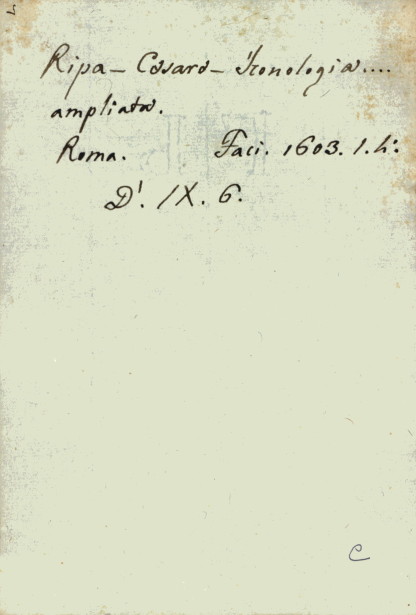 Ripa - Cesare - Iconologia....
ampliata.
Roma. Faci. 1603. 1. 4:
D'. IX. 6.
C